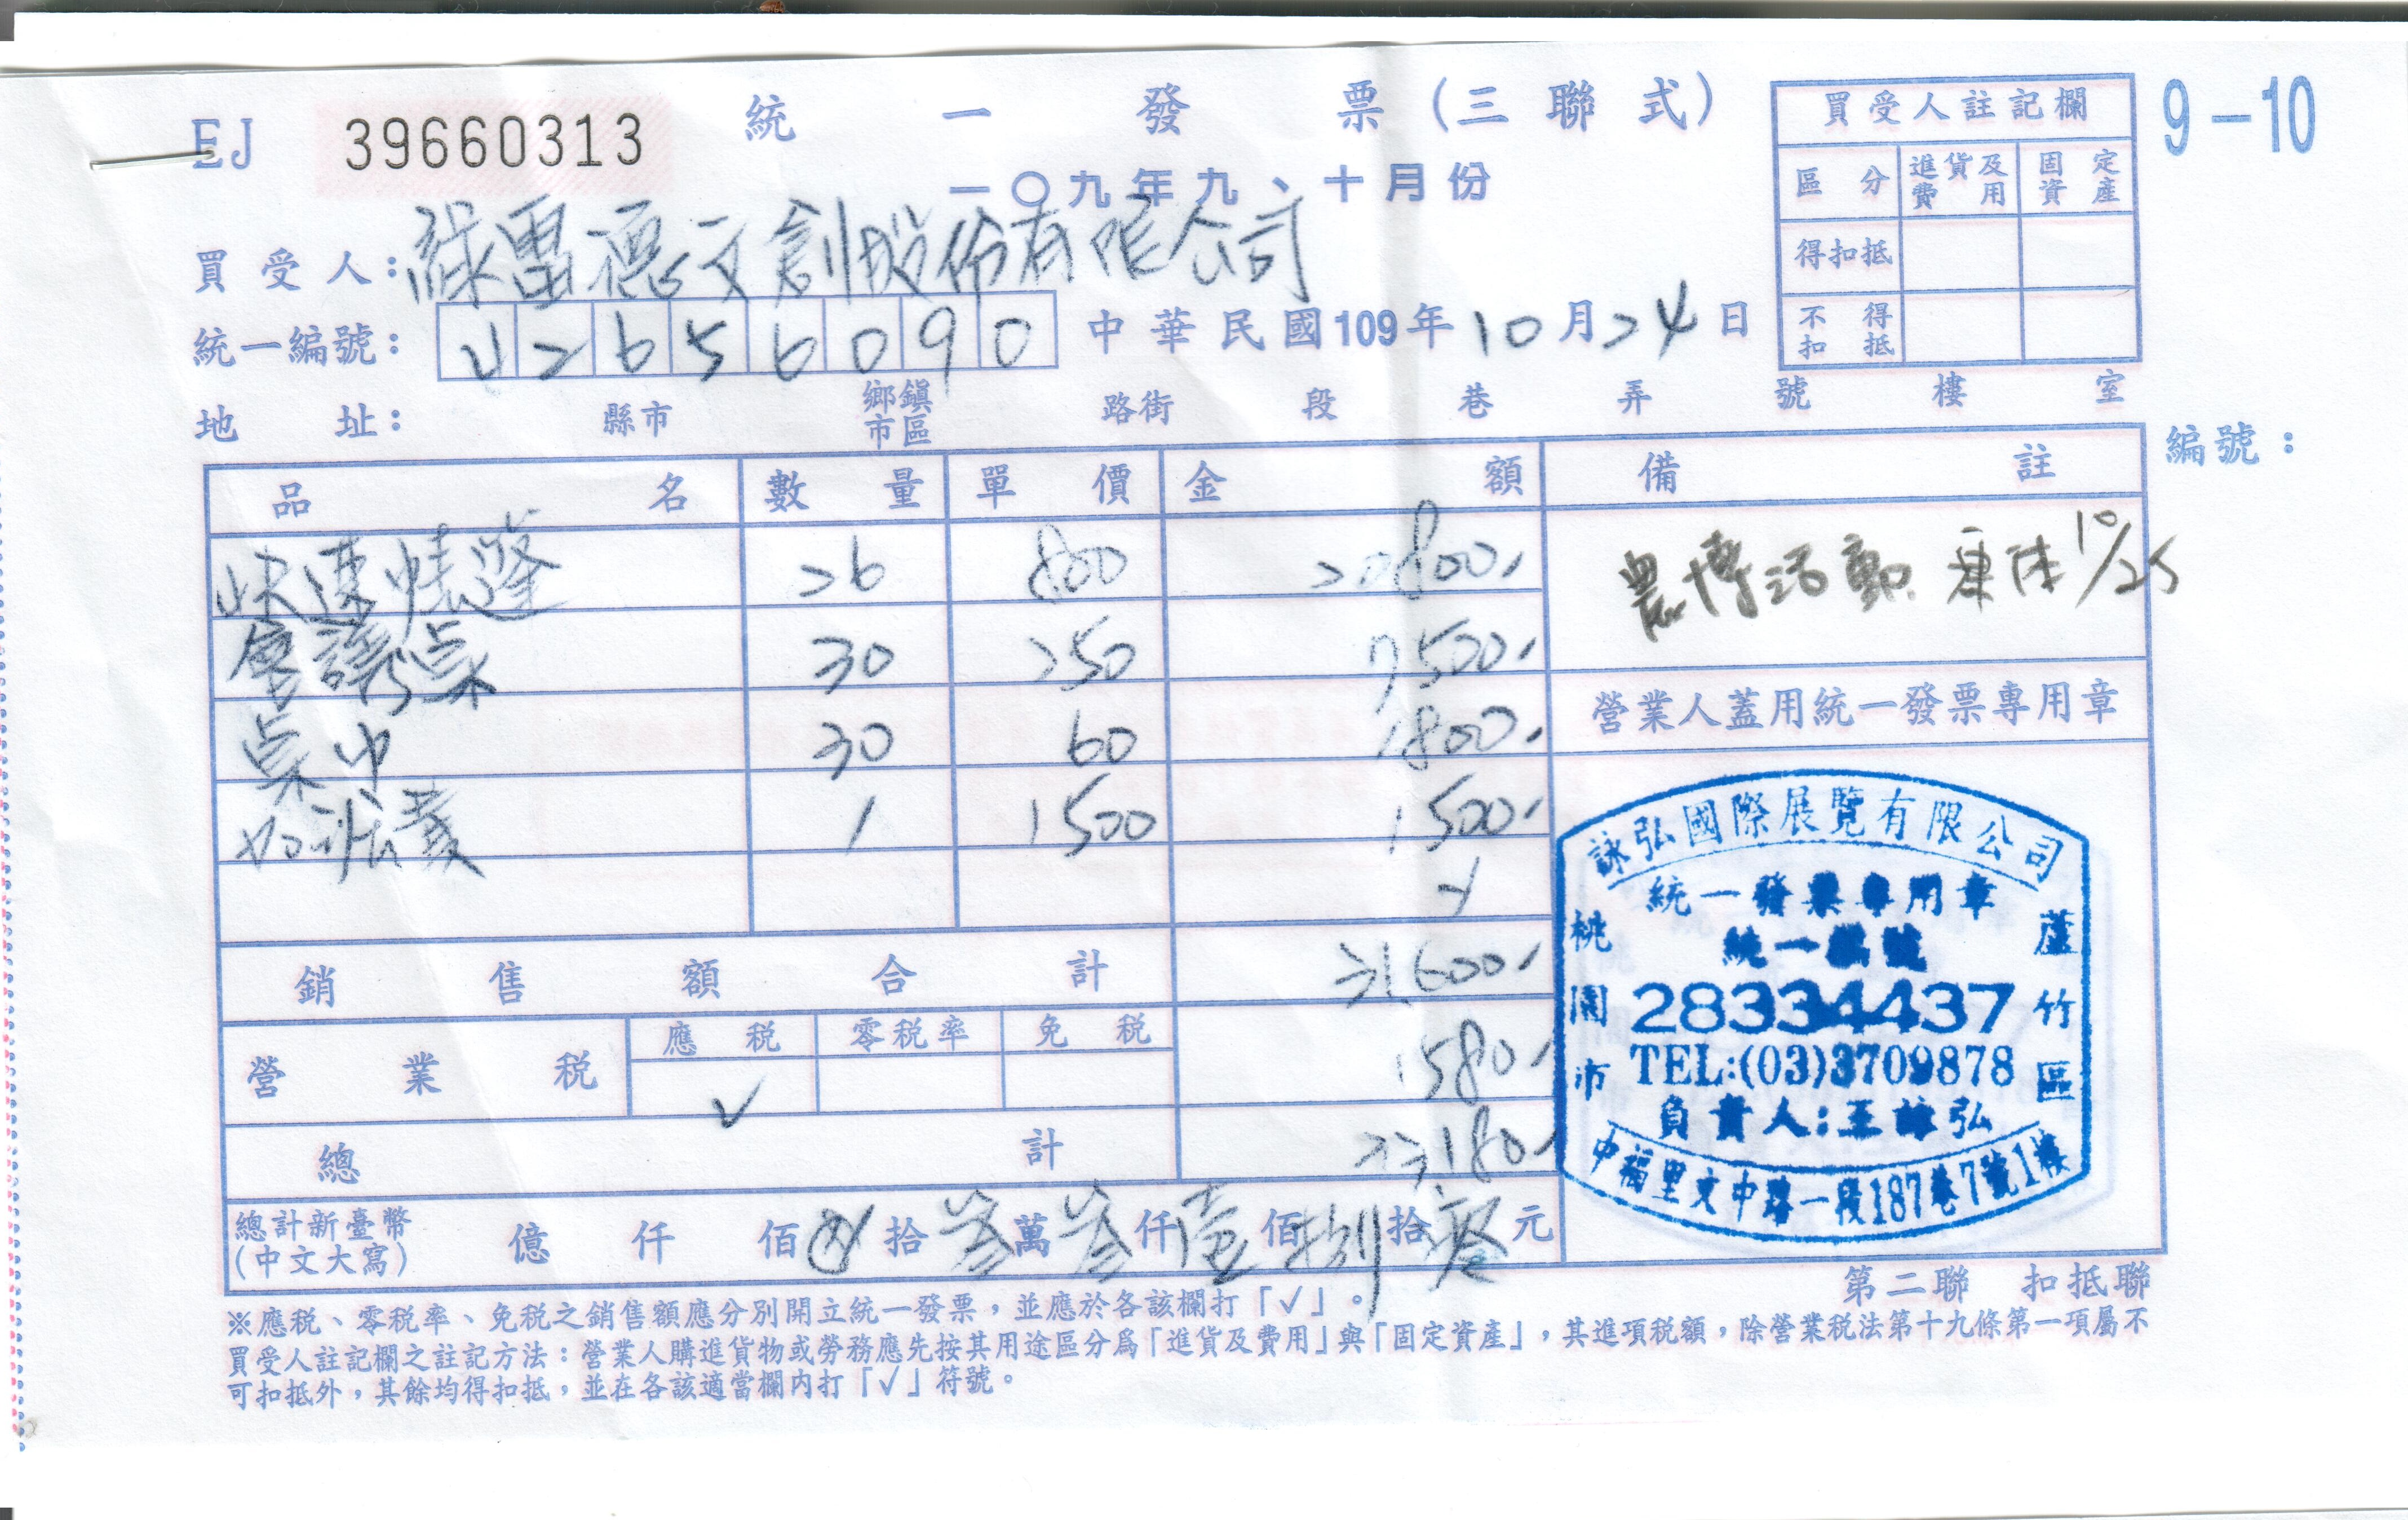 EJ 39660313 統一發票(三聯式) 9-10
一〇九年九、十月份
買受人註記欄
區分 進貨及費用 固定資產
得扣抵
不得扣抵
買受人:綠雷德文創股份有限公司
統一編號: 42656090 中華民國109年10月24日
地址: 縣市 鄉鎮市區 路街 段 巷 弄 號 樓 室
編號:
品名 數量 單價 金額 備註
快速帳篷 26 800 20800
農博活動 10/25
會議桌 30 250 7500
桌巾 30 60 1800
1 1500 1500
營業人蓋用統一發票專用章
銷售額合計 31600
營業稅 應稅 零稅率 免稅 1580
✓
總計 33180
總計新臺幣(中文大寫) 億 仟 佰 拾 叁 萬 叁 仟 壹 佰 捌 拾 零 元
詠弘國際展覽有限公司
統一發票專用章
統一編號
28334437
TEL:(03)3709878
負責人:王詠弘
桃園市 蘆竹區
中福里文中路一段187巷7號1樓
第二聯 扣抵聯
※應稅、零稅率、免稅之銷售額應分別開立統一發票,並應於各該欄打「✓」。
買受人註記欄之註記方法:營業人購進貨物或勞務應先按其用途區分為「進貨及費用」與「固定資產」,其進項稅額,除營業稅法第十九條第一項屬不
可扣抵外,其餘均得扣抵,並在各該適當欄內打「✓」符號。